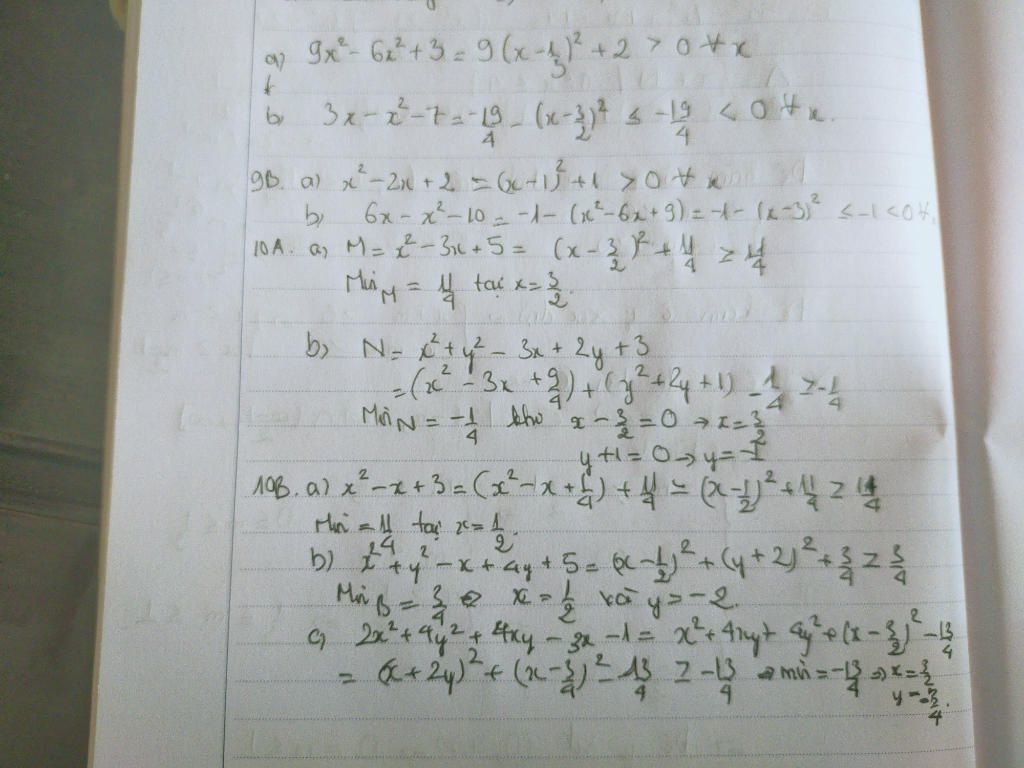 a) 9x² - 6x² + 3 = 9(x - 1/3)² + 2 > 0 ∀x
b) 3x - x² - 7 = -19/4 - (x - 3/2)² ≤ -19/4 < 0 ∀x.
9B. a) x² - 2x + 2 = (x-1)² + 1 > 0 ∀x
b) 6x - x² - 10 = -1 - (x² - 6x + 9) = -1 - (x-3)² ≤ -1 < 0 ∀
10A. a) M = x² - 3x + 5 = (x - 3/2)² + 11/4 ≥ 11/4
Min M = 11/4 tại x = 3/2.
b) N = x² + y² - 3x + 2y + 3
= (x² - 3x + 9/4) + (y² + 2y + 1) - 1/4 ≥ -1/4
Min N = -1/4 khi x - 3/2 = 0 → x = 3/2
y + 1 = 0 → y = -1
10B. a) x² - x + 3 = (x² - x + 1/4) + 11/4 = (x - 1/2)² + 11/4 ≥ 11/4
Min = 11/4 tại x = 1/2.
b) x² + y² - x + 4y + 5 = (x - 1/2)² + (y + 2)² + 3/4 ≥ 3/4
Min B = 3/4 ⇔ x = 1/2 và y = -2.
c) 2x² + 4y² + 4xy - 3x - 1 = x² + 4xy + 4y² + (x - 3/2)² - 13/4
= (x + 2y)² + (x - 3/4)² - 13/4 ≥ -13/4 ⇒ min = -13/4 ⇒ x = 3/2
y = -3/4.